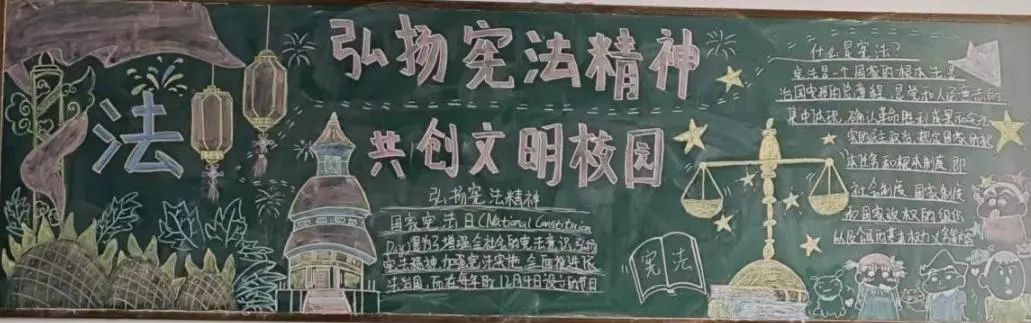 法
弘扬宪法精神
共创文明校园
弘扬宪法精神
国家宪法日(National Constitution
Day)是为了增强全社会的宪法意识,弘扬
宪法精神,加强宪法实施,全面推进依
法治国,而在每年的12月4日设立的节日
宪法
什么是宪法?
宪法是一个国家的根本法,是
治国安邦的总章程,是党和人民意志的
集中体现,确认革命胜利成果和
规定国家的
本任务和根本制度,即
社会制度、国家制度
和国家政权的组织
以及公民的基本权力义务等